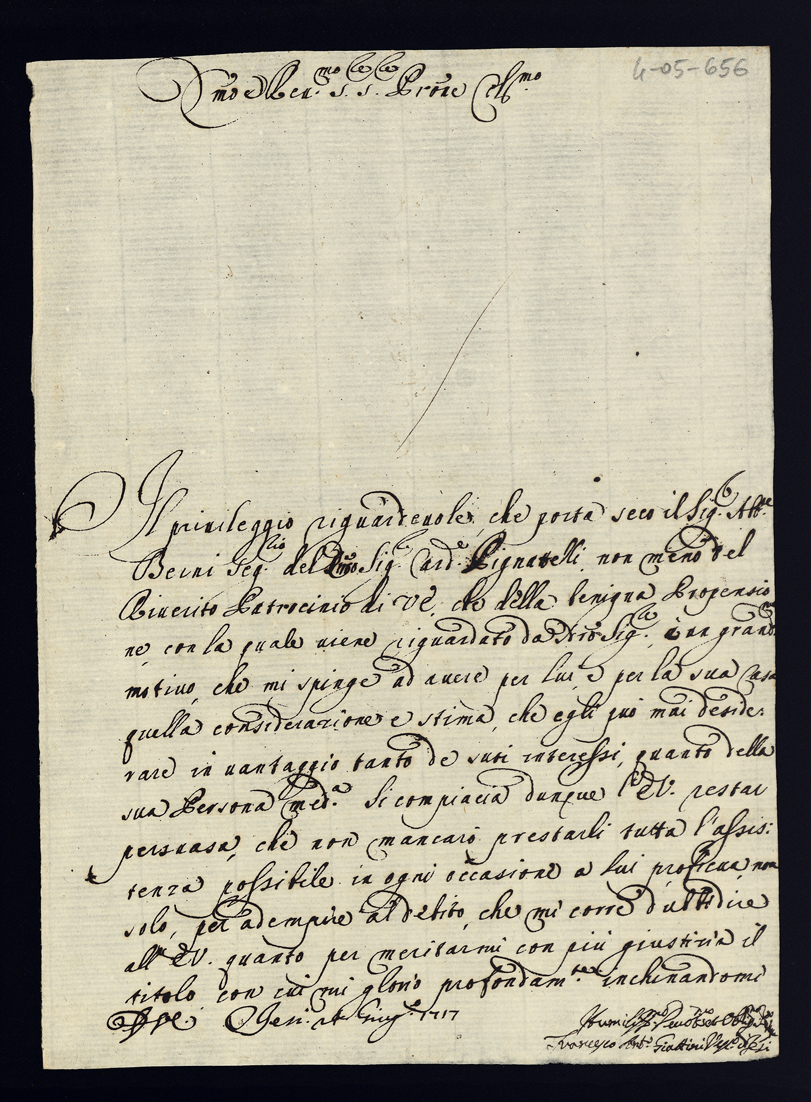 4-05-656
Em̃o e Rev.mo S. S. Prone Col.mo
Il privileggio riguardevole, che porta seco il Sig.r Abb.e
Berni Seg.rio del Sig.r Card.e Pignatelli, non meno del
Riverito Patrocinio di VE, che della benigna Propensio
ne, con la quale viene riguardato da Sig.re, è un grand
motivo, che mi spinge ad avere per lui, e per la sua Casa
quella considerazione e stima, che egli può mai deside:
rare in vantaggio tanto de suoi interessi, quanto della
sua Persona med.a Si compiacia dunque l'EV. restar
persuasa, che non mancarò prestarli tutta l'assis:
tenza possibile in ogni occasione a lui proficua, non
solo, per adempire al debito, che mi corre d'ubbidire
all'EV. quanto per meritarmi con più giustizia il
titolo, con cui mi glorio profondam.te inchinandomi
Di VE. Jesi 1717
Francesco Ant.o Giattini Vesc.o di Jesi